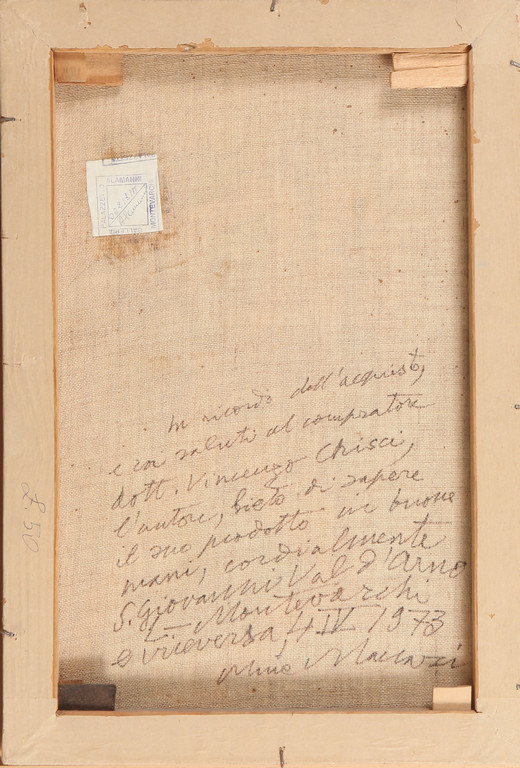 MONTEVARCHI
In ricordo dell'acquisto,
e coi saluti al compratore
dott. Vincenzo Chisci,
l'autore, lieto di sapere
il suo prodotto in buone
mani, cordialmente
S. Giovanni Val d'Arno
- Montevarchi
e viceversa, 4 IV 1973
Mino Maccari
£.50